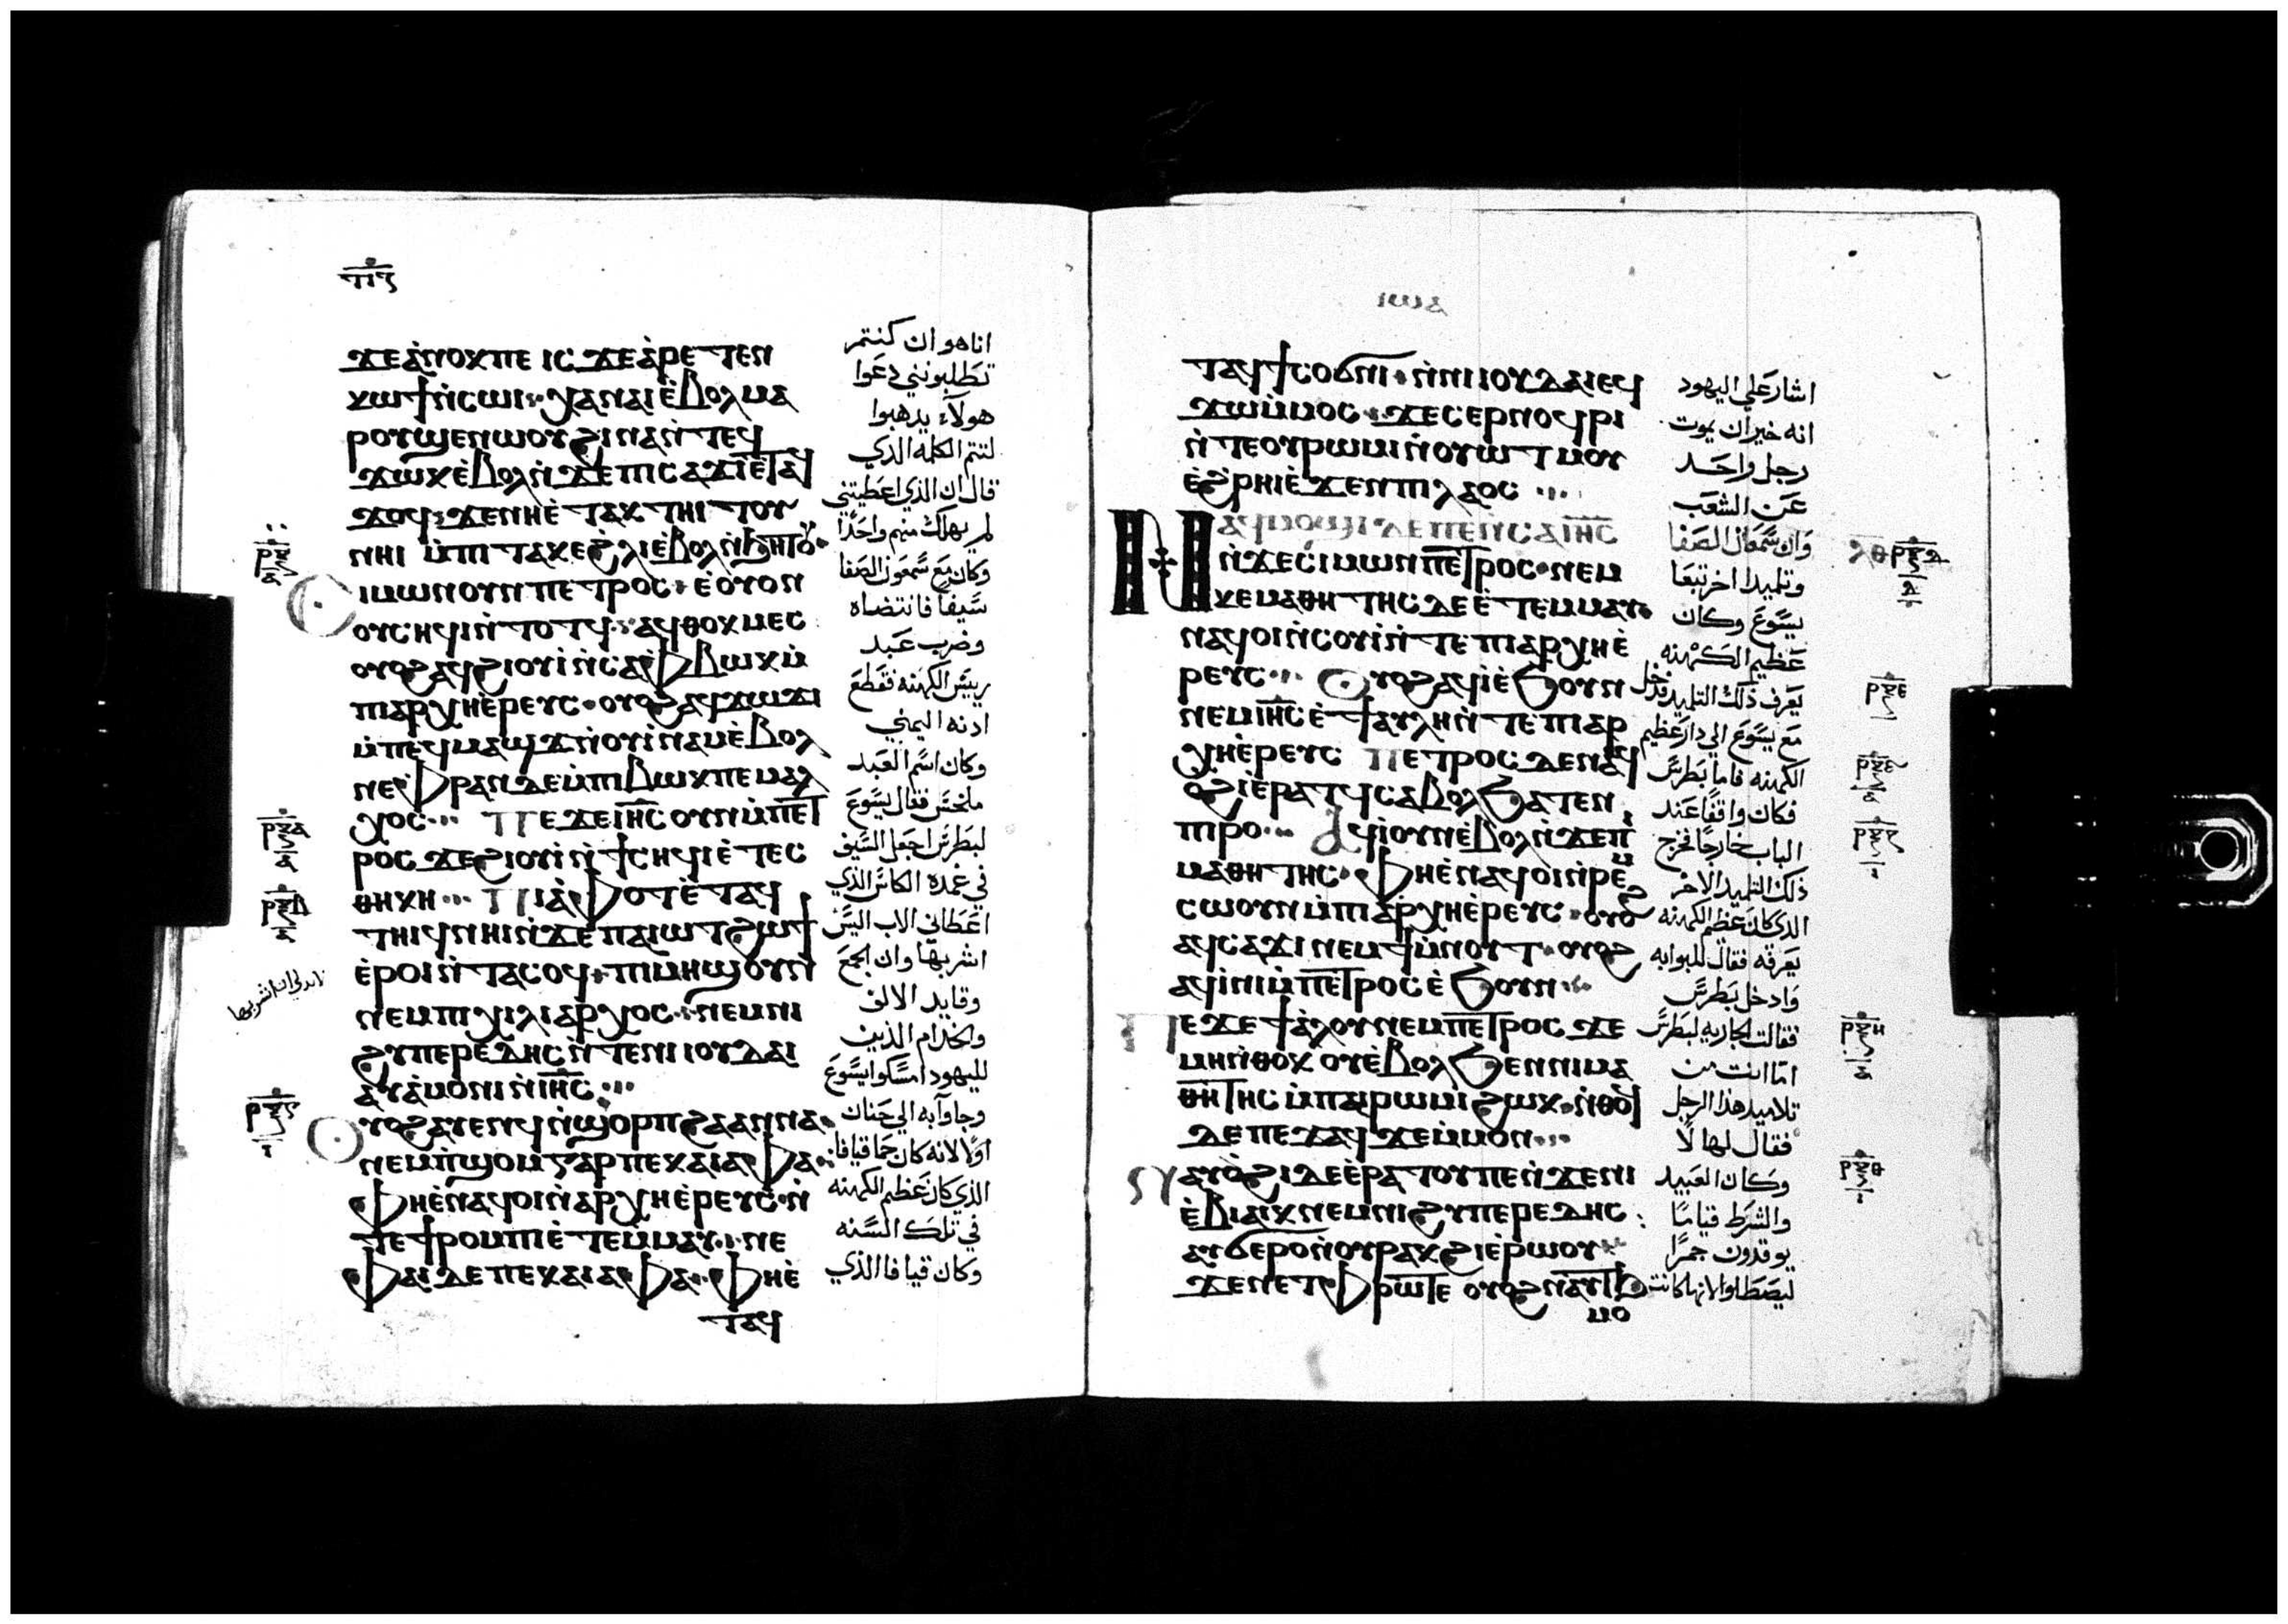 ϫⲉⲁ̀ⲛⲟⲕⲡⲉ ⲓⲥϫⲉⲁ̀ⲣⲉⲧⲉⲛ
ⲕⲱϯⲛ̀ⲥⲱⲓ ⲭⲁⲛⲁⲓⲉ̀ⲃⲟⲗ ⲙⲁ
ⲣⲟⲩϣⲉⲛⲱⲟⲩ ϩⲓⲛⲁⲛ̀ⲧⲉϥ
ϫⲱⲕⲉ̀ⲃⲟⲗⲛ̀ϫⲉⲡⲓⲥⲁϫⲓⲉ̀ⲧⲁϥ
ϫⲟϥ ϫⲉⲛⲏⲉ̀ⲧⲁⲕⲧⲏⲓⲧⲟⲩ
ⲛⲏⲓ ⲙ̀ⲡⲓⲧⲁⲕⲉϩⲗⲓⲉ̀ⲃⲟⲗⲛ̀ϧⲏⲧⲟⲩ
ⲥⲓⲙⲱⲛⲟⲩⲛⲡⲉⲧⲣⲟⲥ ⲉ̀ⲟⲩⲟⲛ
ⲟⲩⲥⲏϥⲓⲛ̀ⲧⲟⲧϥ ⲁϥⲑⲟⲕⲙⲉⲥ
ⲟⲩⲟϩⲁϥϩⲓⲟⲩⲓ̀ⲛ̀ⲥⲁⲫⲃⲱⲕⲙ̀
ⲡⲓⲁⲣⲭⲏⲉ̀ⲣⲉⲩⲥ ⲟⲩⲟϩⲁϥϫⲱϫⲓ
ⲙ̀ⲡⲉϥⲙⲁϣϫⲛ̀ⲟⲩⲓ̀ⲛⲁⲙⲉ̀ⲃⲟⲗ
ⲛⲉⲫⲣⲁⲛⲇⲉⲙ̀ⲡⲓⲃⲱⲕⲡⲉⲙⲁⲗ
ⲭⲟⲥ ⲡⲉϫⲉⲓⲏⲥⲟⲩⲛⲙ̀ⲡⲉⲧ
ⲣⲟⲥϫⲉϩⲓⲟⲩⲓ̀ⲛ̀ϯⲥⲏϥⲓⲉ̀ⲧⲉⲥ
ⲑⲏⲕⲏ ⲡⲓⲁ̀ⲫⲟⲧⲉ̀ⲧⲁϥ
ⲧⲏⲓϥⲛⲏⲓⲛ̀ϫⲉⲡⲁⲓⲱⲧϩⲱϯ
ⲉ̀ⲣⲟⲓⲛ̀ⲧⲁⲥⲟϥ ⲡⲓⲙⲏϣⲟⲩⲛ
ⲛⲉⲙⲡⲓⲭⲓⲗⲓⲁⲣⲭⲟⲥ ⲛⲉⲙⲛⲓ
ϩⲩⲡⲉⲣⲉⲧⲏⲥⲛ̀ⲧⲉⲛⲓⲓⲟⲩⲇⲁⲓ
ⲁⲩⲁ̀ⲙⲟⲛⲓⲛ̀ⲓⲏⲥ
ⲟⲩⲟϩⲁⲩⲉⲛϥⲛ̀ϣⲟⲣⲡϩⲁⲁⲛⲛⲁ
ⲛⲉⲙ̀ⲡϣⲟⲙⲅⲁⲣⲡⲉⲕⲁⲓⲁⲫⲁ
ⲫⲏⲉ̀ⲛⲁϥⲟⲓⲛ̀ⲁⲣⲭⲏⲉ̀ⲣⲉⲩⲥ ⲛ̀
ⲧⲉϯⲣⲟⲙⲡⲓⲉ̀ⲧⲉⲙ̀ⲙⲁⲩ ⲛⲉ
ⲫⲁⲓⲇⲉⲡⲉⲕⲁⲓⲁⲫⲁ ⲫⲏⲉ̀
ⲧⲁϥ
انا هو ان كنتم
تطلبونني دعوا
هولآء يدهبوا
لتتم الكلمه الدي
قال ان الذي اعطيتني
لم يهلك منهم واحدًا
وكان مع سمعون الصفا
سيفًا فانتضاه
وضرب عبد
رييس الكهنه فقطع
ادنه اليمني
وكان اسم العبد
ملخس فقال يسوع
لبطرس اجعل السيف
في غمده الكاس الذي
اعطاني الاب اليس
اشربها وان الجمع
وقايد الالف
والخدام الذين
لليهود امسكوا يسوع
وجاوآ به الي حنان
اولًا لانه كان حما قيافا
الذي كان عظيم الكهنه
في تلك السنه
وكان قيافا الذي
ⲓⲱⲁ
ⲧⲁϥϯⲥⲟϭⲛⲓ ⲛ̀ⲛⲓⲓⲟⲩⲇⲁⲓⲉϥ
ϫⲱⲙ̀ⲙⲟⲥ ϫⲉⲥⲉⲣⲛⲟϥⲣⲓ
ⲛ̀ⲧⲉⲟⲩⲣⲱⲙⲓⲛ̀ⲟⲩⲱⲧⲙⲟⲩ
ⲉ̀ϩⲣⲏⲓⲉ̀ϫⲉⲛⲡⲓⲗⲁⲟⲥ
ⲛⲁϥⲙⲟϣⲓⲇⲉⲡⲉⲛ̀ⲥⲁⲓⲏⲥ
ⲛ̀ϫⲉⲥⲓⲙⲱⲛⲡⲉⲧⲣⲟⲥ ⲛⲉⲙ
ⲕⲉⲙⲁⲑⲏⲧⲏⲥ ⲇⲉⲉ̀ⲧⲉⲙⲙⲁⲩ
ⲛⲁϥⲟⲓⲛ̀ⲥⲟⲩⲓⲛ̀ⲧⲉⲡⲓⲁⲣⲭⲏⲉ̀
ⲣⲉⲩⲥ ⲟⲩⲟϩⲁϥⲓ̀ⲉ̀ϧⲟⲩⲛ
ⲛⲉⲙⲓⲏⲥⲉ̀ϯⲁⲩⲗⲏⲛ̀ⲧⲉⲡⲓⲁⲣ
ⲭⲏⲉ̀ⲣⲉⲩⲥ ⲡⲉⲧⲣⲟⲥⲇⲉⲛⲁϥ
ⲟϩⲓⲉ̀ⲣⲁⲧϥⲥⲁⲃⲟⲗϧⲁⲧⲉⲛ
ⲡⲓⲣⲟ ⲁϥⲓ̀ⲟⲩⲛⲉ̀ⲃⲟⲗⲛ̀ϫⲉⲡⲓ
ⲙⲁⲑⲏⲧⲏⲥ ⲫⲏⲉ̀ⲛⲁϥⲟⲓⲛ̀ⲣⲉⲙ
ⲥⲱⲟⲩⲛⲙ̀ⲡⲓⲁⲣⲭⲏⲉ̀ⲣⲉⲩⲥ ⲟⲩⲟϩ
ⲁϥⲥⲁϫⲓⲛⲉⲙϯⲙ̀ⲛⲟⲩⲧ ⲟⲩⲟϩ
ⲁϥⲓ̀ⲛⲓⲙ̀ⲡⲉⲧⲣⲟⲥⲉ̀ϧⲟⲩⲛ
ⲡⲉϫⲉϯⲁ̀ⲗⲟⲩⲛⲉⲙⲡⲉⲧⲣⲟⲥ ϫⲉ
ⲙⲏⲛ̀ⲑⲟⲕ ⲟⲩⲉ̀ⲃⲟⲗϧⲉⲛⲛⲓⲙⲁ
ⲑⲏⲧⲏⲥⲙ̀ⲡⲁⲓⲣⲱⲙⲓϩⲱⲕ ⲛ̀ⲑⲟϥ
ⲇⲉⲡⲉϫⲁϥϫⲉⲙ̀ⲙⲟⲛ
ⲛⲁⲩⲟ̀ϩⲓⲇⲉⲉ̀ⲣⲁⲧⲟⲩⲡⲉⲛ̀ϫⲉⲛⲓ
ⲉ̀ⲃⲓⲁⲓⲕⲛⲉⲙⲛⲓϩⲩⲡⲉⲣⲉⲧⲏⲥ
ⲁⲩϭⲉⲣⲟⲛ̀ⲟⲩⲣⲁⲕϩⲓⲉ̀ⲣⲱⲟⲩ
ϫⲉⲛⲉⲧⲫⲣⲱⲧⲉ ⲟⲩⲟϩⲛⲁⲩϧ
ⲙⲟ
اشار علي اليهود
انه خير ان يموت
رجل واحد
عن الشعب
وان سمعان الصفا
وتلميدا اخر تبعا
يسوع وكان
عظيم الكهنه
يعرف ذلك التلميد فدخل
مع يسوع الي دار عظيم
الكهنه فاما بطرس
فكان واقفًا عند
الباب خارجًا فخرج
ذلك التلميد الاخر
الدي كان عظيم الكهنه
يعرفه فقال للبوابه
وادخل بطرس
فقالت الجاريه لبطرس
اما انت من
تلاميد هذا الرجل
فقال لها لا
وكان العبيد
والشرط قيامًا
يوقدون جمرًا
ليصطلوا لانها كانت